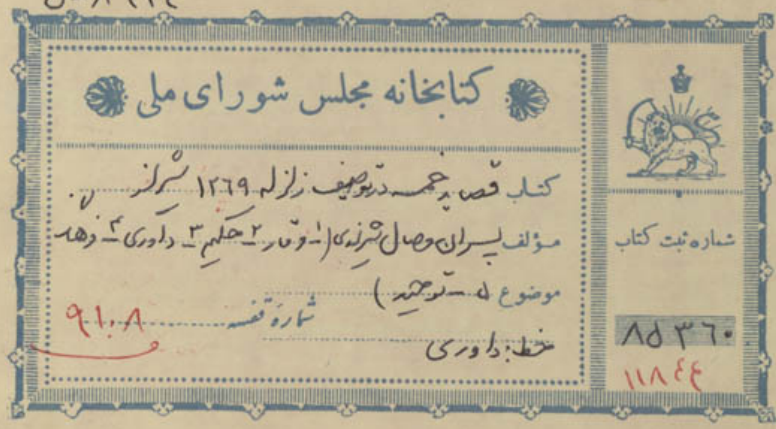 کتابخانه مجلس شورای ملی
کتاب قصاید خمسه در توصیف زلزله ۱۲۶۹ شیراز
مؤلف پسران وصال شیرازی (۱- وقار ۲- حکیم ۳- داوری ۴- فرهنگ
موضوع ۵- توحید)
شمارهٔ قفسه ۹۱۰۸
خط: داوری
شماره ثبت کتاب
۸۵۳۶۰
۱۱۸۴۴